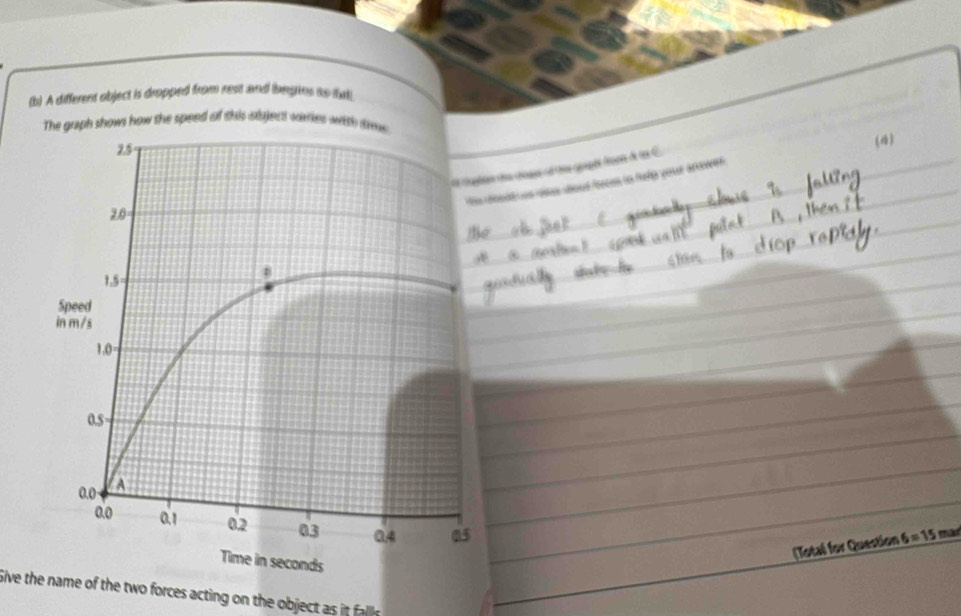 (b) A different object is dropped from rest and begins to fall.
The graph shows how the speed of this object varies with time.
2.5
2.0
1.5
Speed
in m/s
1.0
0.5
0.0
A
B
0.0 0.1 0.2 0.3 0.4 0.5
Time in seconds
Give the name of the two forces acting on the object as it falls
the shape of the graph from A to C.
to help your answer.
(4)
the object gradually is falling
at a constant until point , then it
gradually to drop rapidly.
(Total for Question 6 = 15 mar